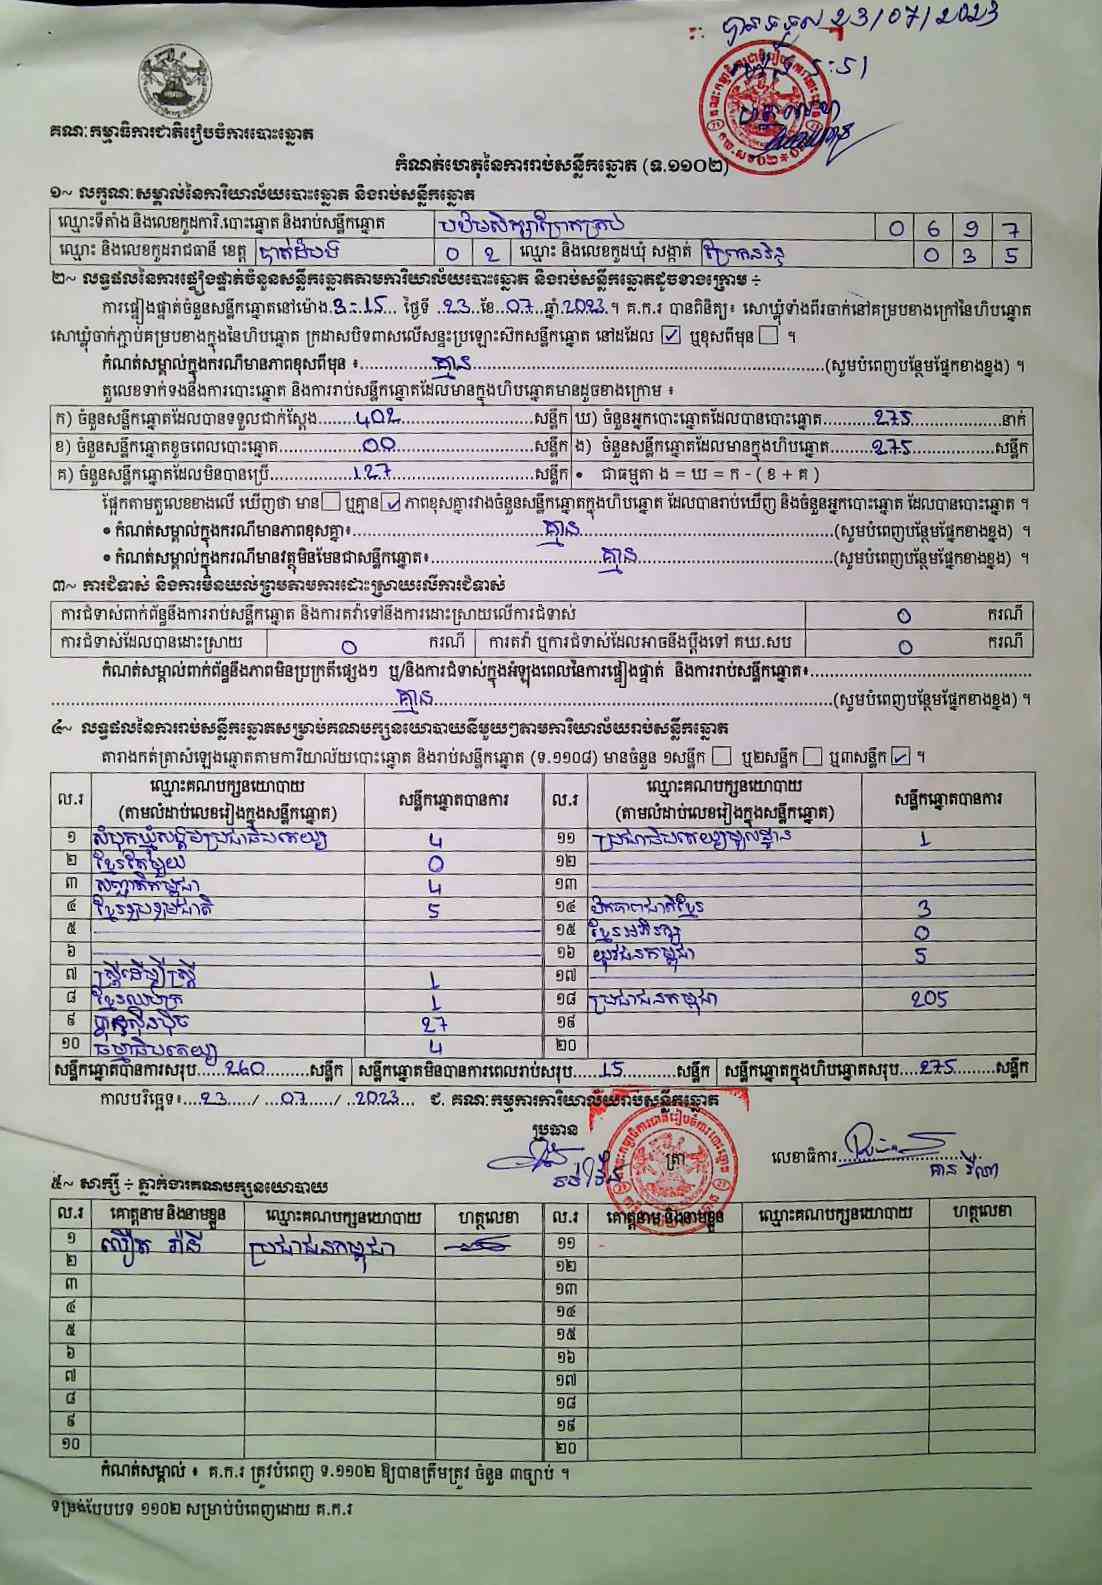 បានទទួល 23/07/2023
គណៈកម្មាធិការជាតិរៀបចំការបោះឆ្នោត
កំណត់ហេតុនៃការរាប់សន្លឹកឆ្នោត (ទ.១១០២)
១~ លក្ខណៈសម្គាល់នៃការិយាល័យបោះឆ្នោត និងរាប់សន្លឹកឆ្នោត
ឈ្មោះទីតាំង និងលេខកូដការិ.បោះឆ្នោត និងរាប់សន្លឹកឆ្នោត 0 6 9 7
ឈ្មោះ និងលេខកូដរាជធានី ខេត្ត បាត់ដំបង 0 2 ឈ្មោះ និងលេខកូដឃុំ សង្កាត់ 0 3 5
២~ លទ្ធផលនៃការផ្ទៀងផ្ទាត់ចំនួនសន្លឹកឆ្នោតតាមការិយាល័យបោះឆ្នោត និងរាប់សន្លឹកឆ្នោតដូចខាងក្រោម ÷
ការផ្ទៀងផ្ទាត់ចំនួនសន្លឹកឆ្នោតនៅម៉ោង 3:15 ថ្ងៃទី 23 ខែ 07 ឆ្នាំ 2023។ គ.ក.រ បានពិនិត្យ៖ សោឃ្លុំទាំងពីរចាក់នៅគម្របខាងក្រៅនៃហិបឆ្នោត
សោឃ្លុំចាក់ភ្ជាប់គម្របខាងក្នុងនៃហិបឆ្នោត ក្រដាសបិទពាសលើសន្ទះប្រឡោះស៊កសន្លឹកឆ្នោត នៅដដែល ☑ ឬខុសពីមុន ☐ ។
កំណត់សម្គាល់ក្នុងករណីមានភាពខុសពីមុន ៖ គ្មាន (សូមបំពេញបន្ថែមផ្នែកខាងខ្នង) ។
តួលេខទាក់ទងនឹងការបោះឆ្នោត និងការរាប់សន្លឹកឆ្នោតដែលមានក្នុងហិបឆ្នោតមានដូចខាងក្រោម ៖
ក) ចំនួនសន្លឹកឆ្នោតដែលបានទទួលជាក់ស្តែង 402 សន្លឹក ឃ) ចំនួនអ្នកបោះឆ្នោតដែលបានបោះឆ្នោត 275 នាក់
ខ) ចំនួនសន្លឹកឆ្នោតខូចពេលបោះឆ្នោត 00 សន្លឹក ង) ចំនួនសន្លឹកឆ្នោតដែលមានក្នុងហិបឆ្នោត 275 សន្លឹក
គ) ចំនួនសន្លឹកឆ្នោតដែលមិនបានប្រើ 127 សន្លឹក • ជាធម្មតា ង = ឃ = ក - ( ខ + គ )
ផ្អែកតាមតួលេខខាងលើ ឃើញថា មាន ☐ ឬគ្មាន ☑ ភាពខុសគ្នារវាងចំនួនសន្លឹកឆ្នោតក្នុងហិបឆ្នោត ដែលបានរាប់ឃើញ និងចំនួនអ្នកបោះឆ្នោត ដែលបានបោះឆ្នោត ។
• កំណត់សម្គាល់ក្នុងករណីមានភាពខុសគ្នា៖ គ្មាន (សូមបំពេញបន្ថែមផ្នែកខាងខ្នង) ។
• កំណត់សម្គាល់ក្នុងករណីមានវត្ថុមិនមែនជាសន្លឹកឆ្នោត៖ គ្មាន (សូមបំពេញបន្ថែមផ្នែកខាងខ្នង) ។
៣~ ការជំទាស់ និងការមិនយល់ព្រមតាមការដោះស្រាយលើការជំទាស់
ការជំទាស់ពាក់ព័ន្ធនឹងការរាប់សន្លឹកឆ្នោត និងការតវ៉ាទៅនឹងការដោះស្រាយលើការជំទាស់ 0 ករណី
ការជំទាស់ដែលបានដោះស្រាយ 0 ករណី ការតវ៉ា ឬការជំទាស់ដែលអាចនឹងប្តឹងទៅ គឃ.សប 0 ករណី
កំណត់សម្គាល់ពាក់ព័ន្ធនឹងភាពមិនប្រក្រតីផ្សេងៗ ឬ/និងការជំទាស់ក្នុងអំឡុងពេលនៃការផ្ទៀងផ្ទាត់ និងការរាប់សន្លឹកឆ្នោត៖
គ្មាន (សូមបំពេញបន្ថែមផ្នែកខាងខ្នង) ។
៤~ លទ្ធផលនៃការរាប់សន្លឹកឆ្នោតសម្រាប់គណបក្សនយោបាយនីមួយៗតាមការិយាល័យរាប់សន្លឹកឆ្នោត
តារាងកត់ត្រាសំឡេងឆ្នោតតាមការិយាល័យបោះឆ្នោត និងរាប់សន្លឹកឆ្នោត (ទ.១១០៨) មានចំនួន ១សន្លឹក ☐ ឬ២សន្លឹក ☐ ឬ៣សន្លឹក ☑ ។
ល.រ ឈ្មោះគណបក្សនយោបាយ (តាមលំដាប់លេខរៀងក្នុងសន្លឹកឆ្នោត) សន្លឹកឆ្នោតបានការ ល.រ ឈ្មោះគណបក្សនយោបាយ (តាមលំដាប់លេខរៀងក្នុងសន្លឹកឆ្នោត) សន្លឹកឆ្នោតបានការ
១ សំបុកឃ្មុំសង្គមប្រជាធិបតេយ្យ 4 ១១ ប្រជាធិបតេយ្យមូលដ្ឋាន 1
២ ខ្មែរតែមួយ 0 ១២
៣ សញ្ជាតិកម្ពុជា 4 ១៣
៤ ខ្មែររួបរួមជាតិ 5 ១៤ ឯកភាពជាតិខ្មែរ 3
៥ ១៥ ខ្មែរអភិរក្ស 0
៦ ១៦ យុវជនកម្ពុជា 5
៧ ស្ត្រីដើម្បីស្ត្រី 1 ១៧
៨ ខ្មែរឈប់ក្រ 1 ១៨ ប្រជាជនកម្ពុជា 205
៩ ហ្វ៊ុនស៊ិនប៉ិច 27 ១៩
១០ ធម្មាធិបតេយ្យ 4 ២០
សន្លឹកឆ្នោតបានការសរុប 260 សន្លឹក សន្លឹកឆ្នោតមិនបានការពេលរាប់សរុប 15 សន្លឹក សន្លឹកឆ្នោតក្នុងហិបឆ្នោតសរុប 275 សន្លឹក
កាលបរិច្ឆេទ៖ 23 / 07 / 2023 ជ. គណៈកម្មការការិយាល័យរាប់សន្លឹកឆ្នោត
ប្រធាន ត្រា លេខាធិការ
៥~ សាក្សី ÷ ភ្នាក់ងារគណបក្សនយោបាយ
ល.រ គោត្តនាម និងនាមខ្លួន ឈ្មោះគណបក្សនយោបាយ ហត្ថលេខា ល.រ គោត្តនាម និងនាមខ្លួន ឈ្មោះគណបក្សនយោបាយ ហត្ថលេខា
១ ប្រជាជនកម្ពុជា ១១
២ ១២
៣ ១៣
៤ ១៤
៥ ១៥
៦ ១៦
៧ ១៧
៨ ១៨
៩ ១៩
១០ ២០
កំណត់សម្គាល់ ៖ គ.ក.រ ត្រូវបំពេញ ទ.១១០២ ឱ្យបានត្រឹមត្រូវ ចំនួន ៣ច្បាប់ ។
ទម្រង់បែបបទ ១១០២ សម្រាប់បំពេញដោយ គ.ក.រ